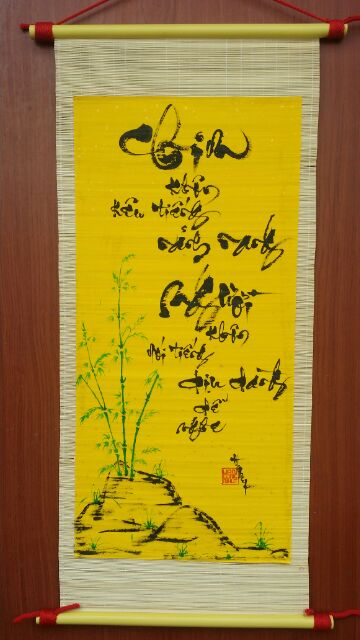 Chim
khôn
kêu tiếng
rảnh rang
Người
khôn
nói tiếng
dịu dàng
dễ
nghe